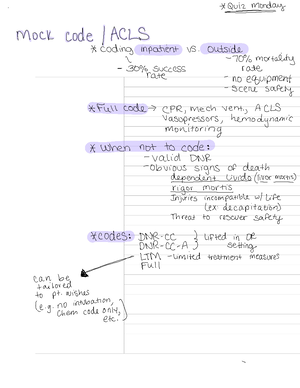 *Quiz monday
Mock code / ACLS
* coding inpatient vs. outside
- 30% success rate
- 70% mortality rate
- no equipment
- scene safety
*Full code → CPR, mech vent., ACLS
vasopressors, hemodynamic
monitoring
*When not to code:
- valid DNR
- Obvious signs of death
dependent livido (livor mortis)
rigor mortis
Injuries incompatible w/ life
(ex: decapitation)
Threat to rescuer safety
*codes: DNR-CC } lifted in OR
DNR-CC-A } setting
LTM - limited treatment measures
Full
can be
tailored
to pt. wishes
(e.g. no intubation,
chem code only,
etc.)